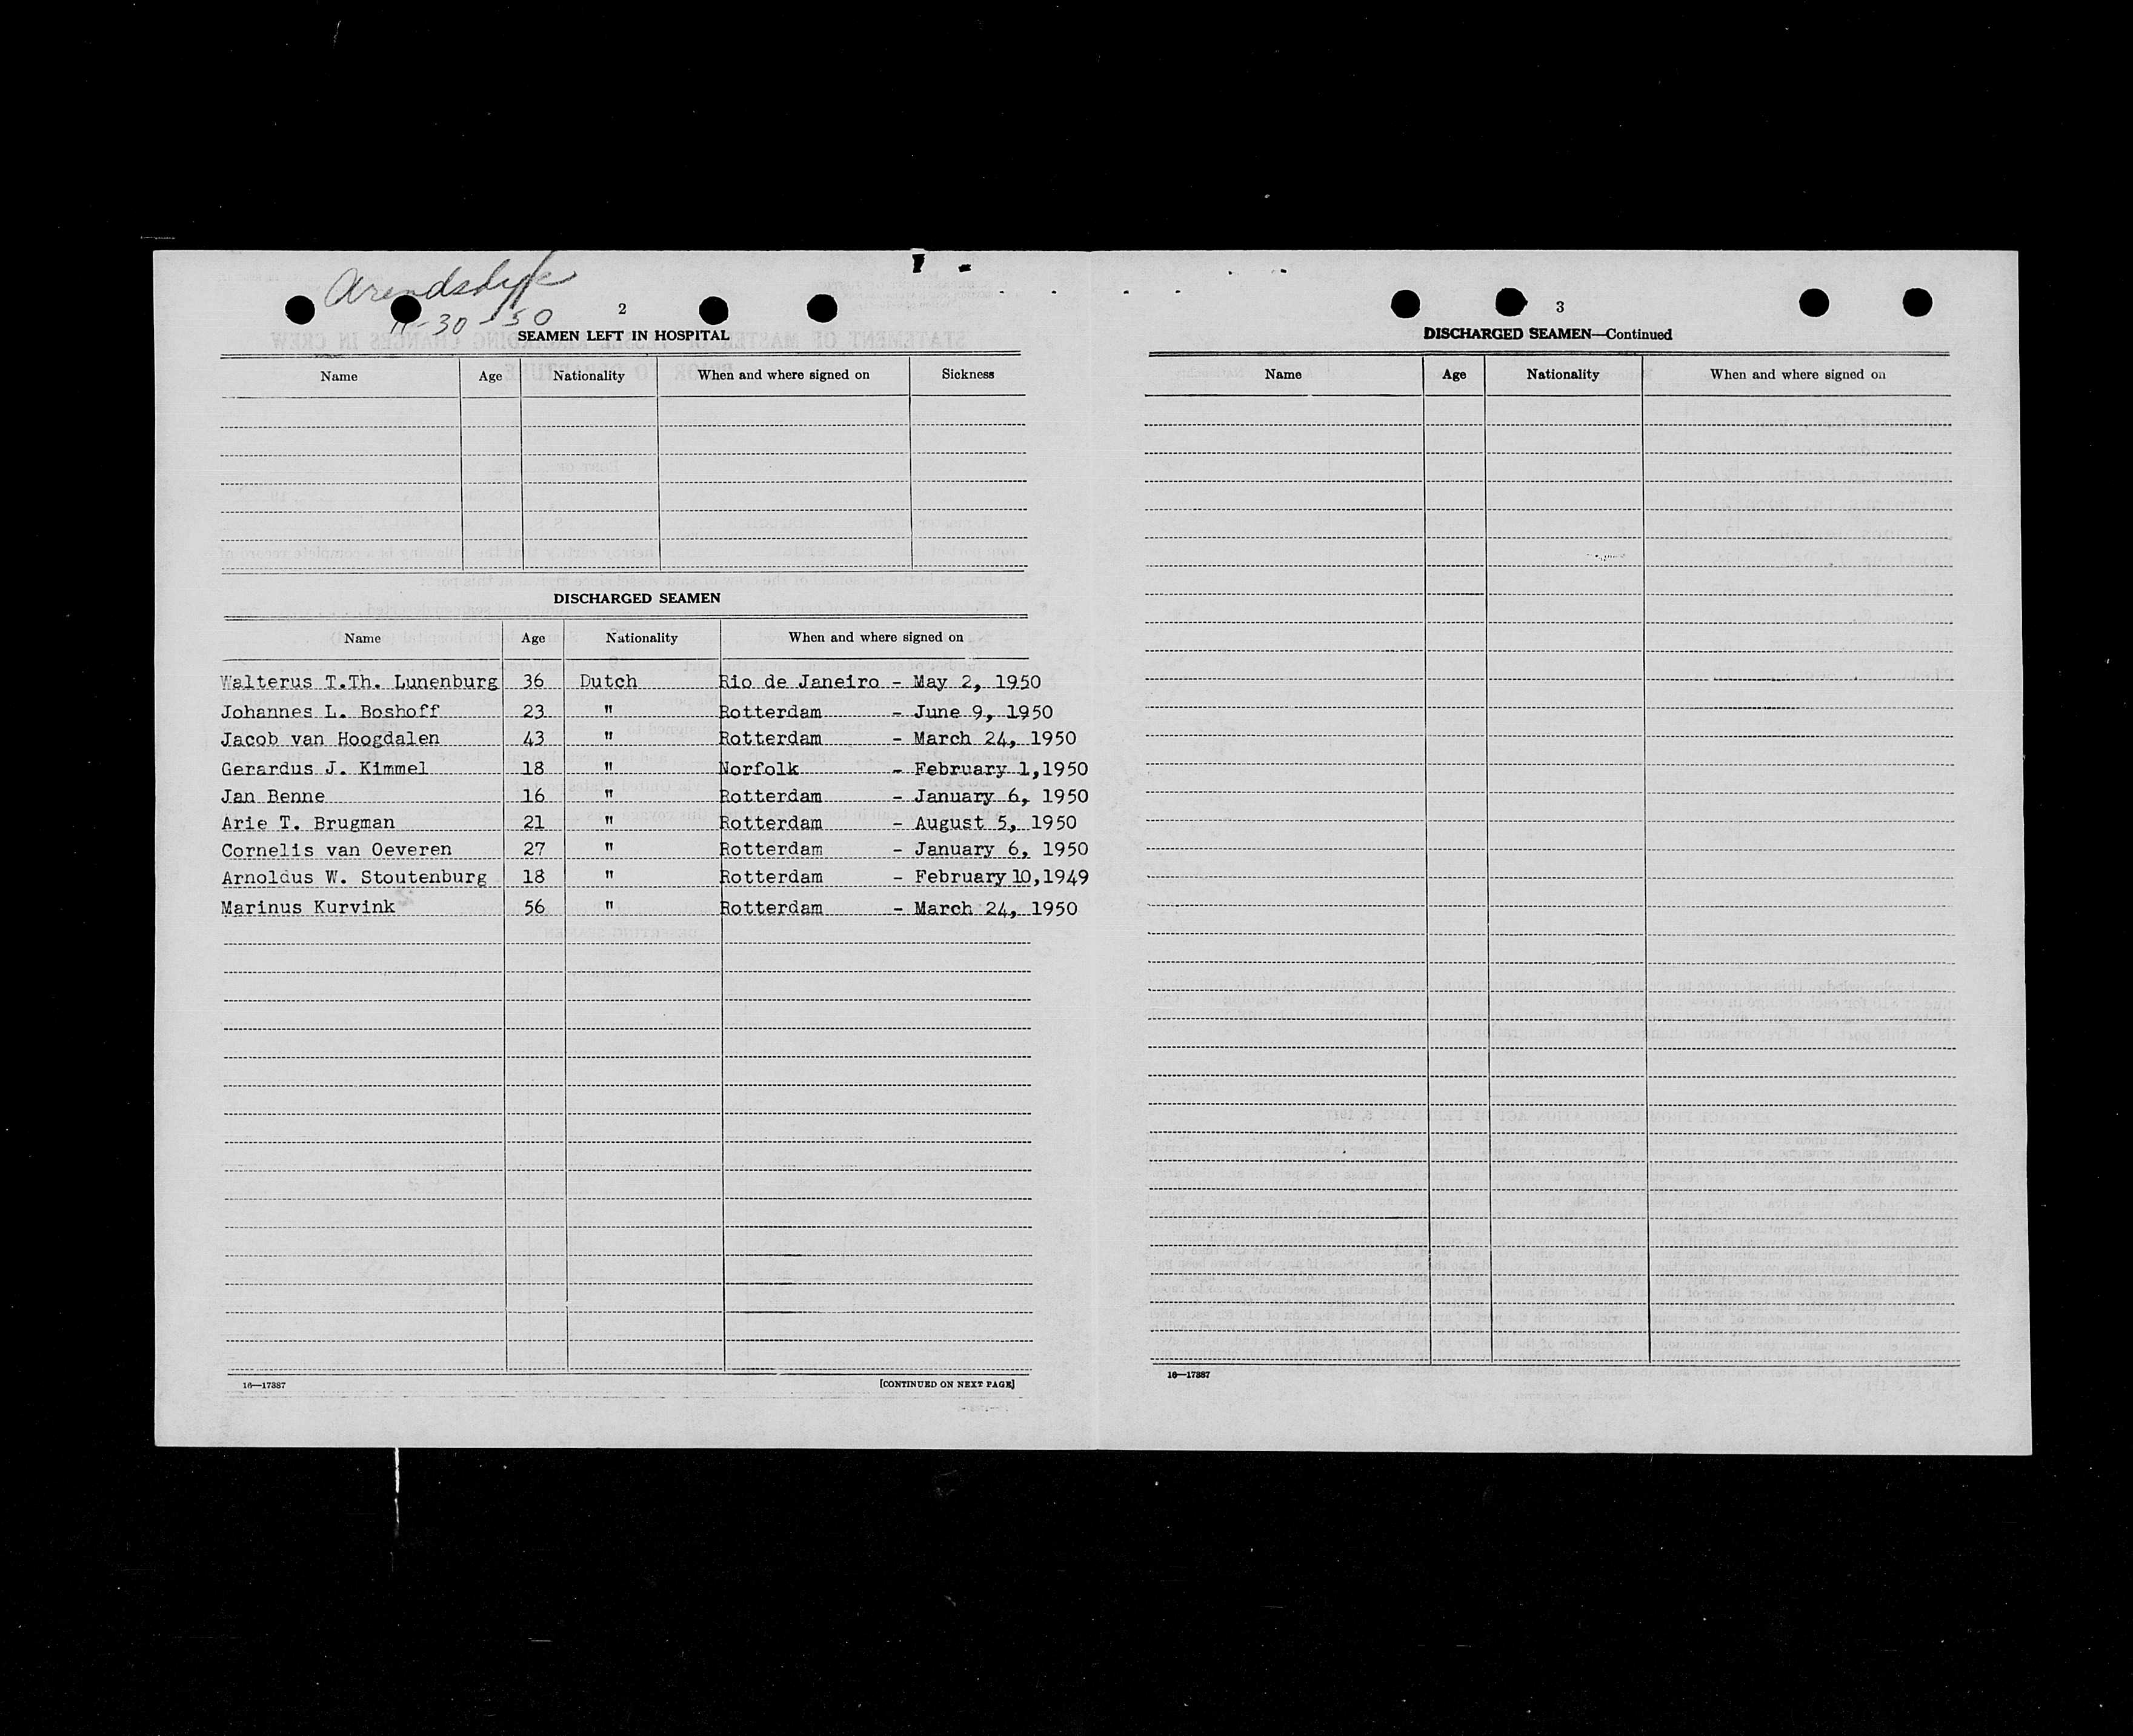 Arendsdyk
11-30-50
2
SEAMEN LEFT IN HOSPITAL
Name Age Nationality When and where signed on Sickness
DISCHARGED SEAMEN
Name Age Nationality When and where signed on
Walterus T.Th. Lunenburg 36 Dutch Rio de Janeiro - May 2, 1950
Johannes L. Boshoff 23 " Rotterdam - June 9, 1950
Jacob van Hoogdalen 43 " Rotterdam - March 24, 1950
Gerardus J. Kimmel 18 " Norfolk - February 1,1950
Jan Benne 16 " Rotterdam - January 6, 1950
Arie T. Brugman 21 " Rotterdam - August 5, 1950
Cornelis van Oeveren 27 " Rotterdam - January 6, 1950
Arnoldus W. Stoutenburg 18 " Rotterdam - February 10,1949
Marinus Kurvink 56 " Rotterdam - March 24, 1950
16—17387
[CONTINUED ON NEXT PAGE]
3
DISCHARGED SEAMEN—Continued
Name Age Nationality When and where signed on
16—17387